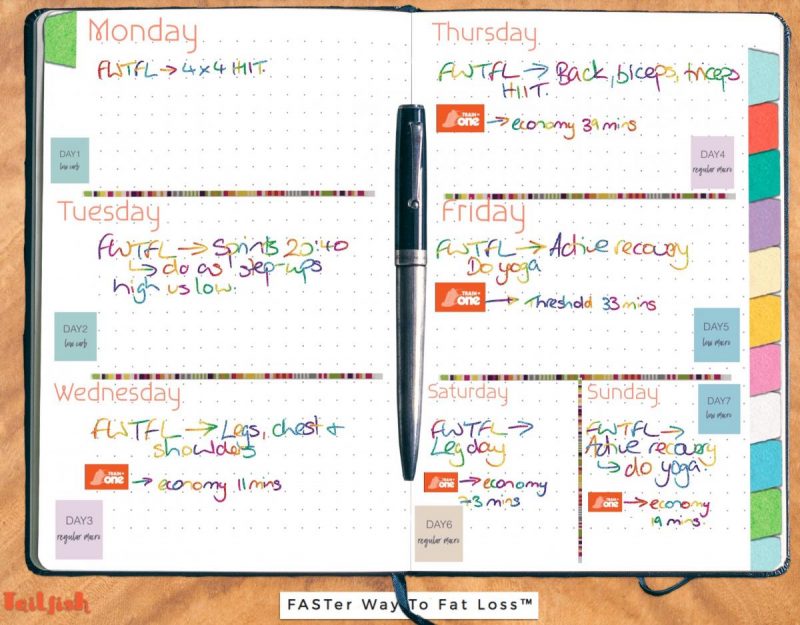 Monday
FWTFL → 4x4 HIIT.
DAY1
low carb
Tuesday
FWTFL → Sprints 20:40
↳ do as step-ups
high us low.
DAY2
low carb
Wednesday
FWTFL → Legs, chest +
showlders
TRAIN AS ONE → economy 11 mins
DAY3
regular macro
Thursday
FWTFL → Back, biceps, triceps
HIIT.
TRAIN AS ONE → economy 39 mins
DAY4
regular macro
Friday
FWTFL → Active recovery
Do yoga
TRAIN AS ONE → Threshold 33 mins
DAY5
low macro
Saturday
FWTFL →
Leg day
TRAIN AS ONE → economy
73 mins
DAY6
regular macro
Sunday
DAY7
low macro
FWTFL →
Active recovery
↳ do yoga
TRAIN AS ONE → economy
19 mins.
Tailfish
FASTer Way To Fat Loss™